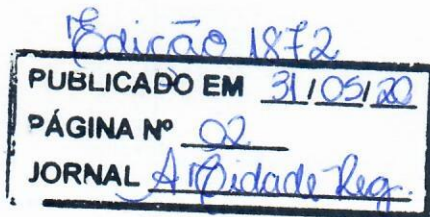 Edição 1872
PUBLICADO EM 31/05/20
PÁGINA Nº 02
JORNAL A Cidade Reg.